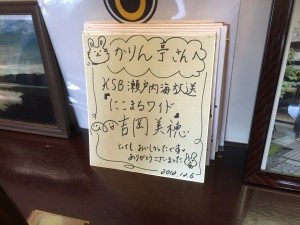 かりん亭さんへ
KSB瀬戸内海放送
『にこまるワイド』
吉岡美穂
とっても、おいしかったです。
ありがとうございました
2012.12.6